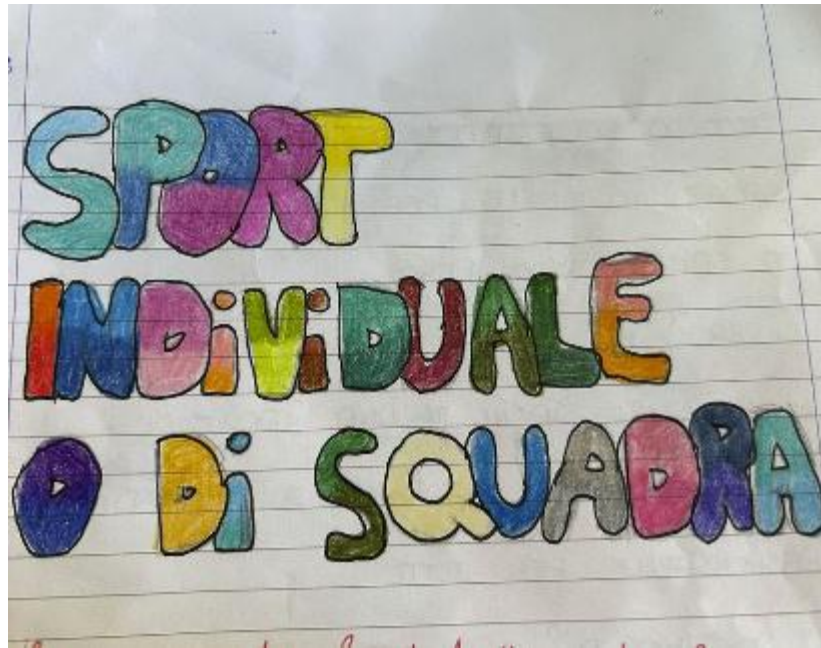 SPORT
INDiViDUALE
O Di SQUADRA